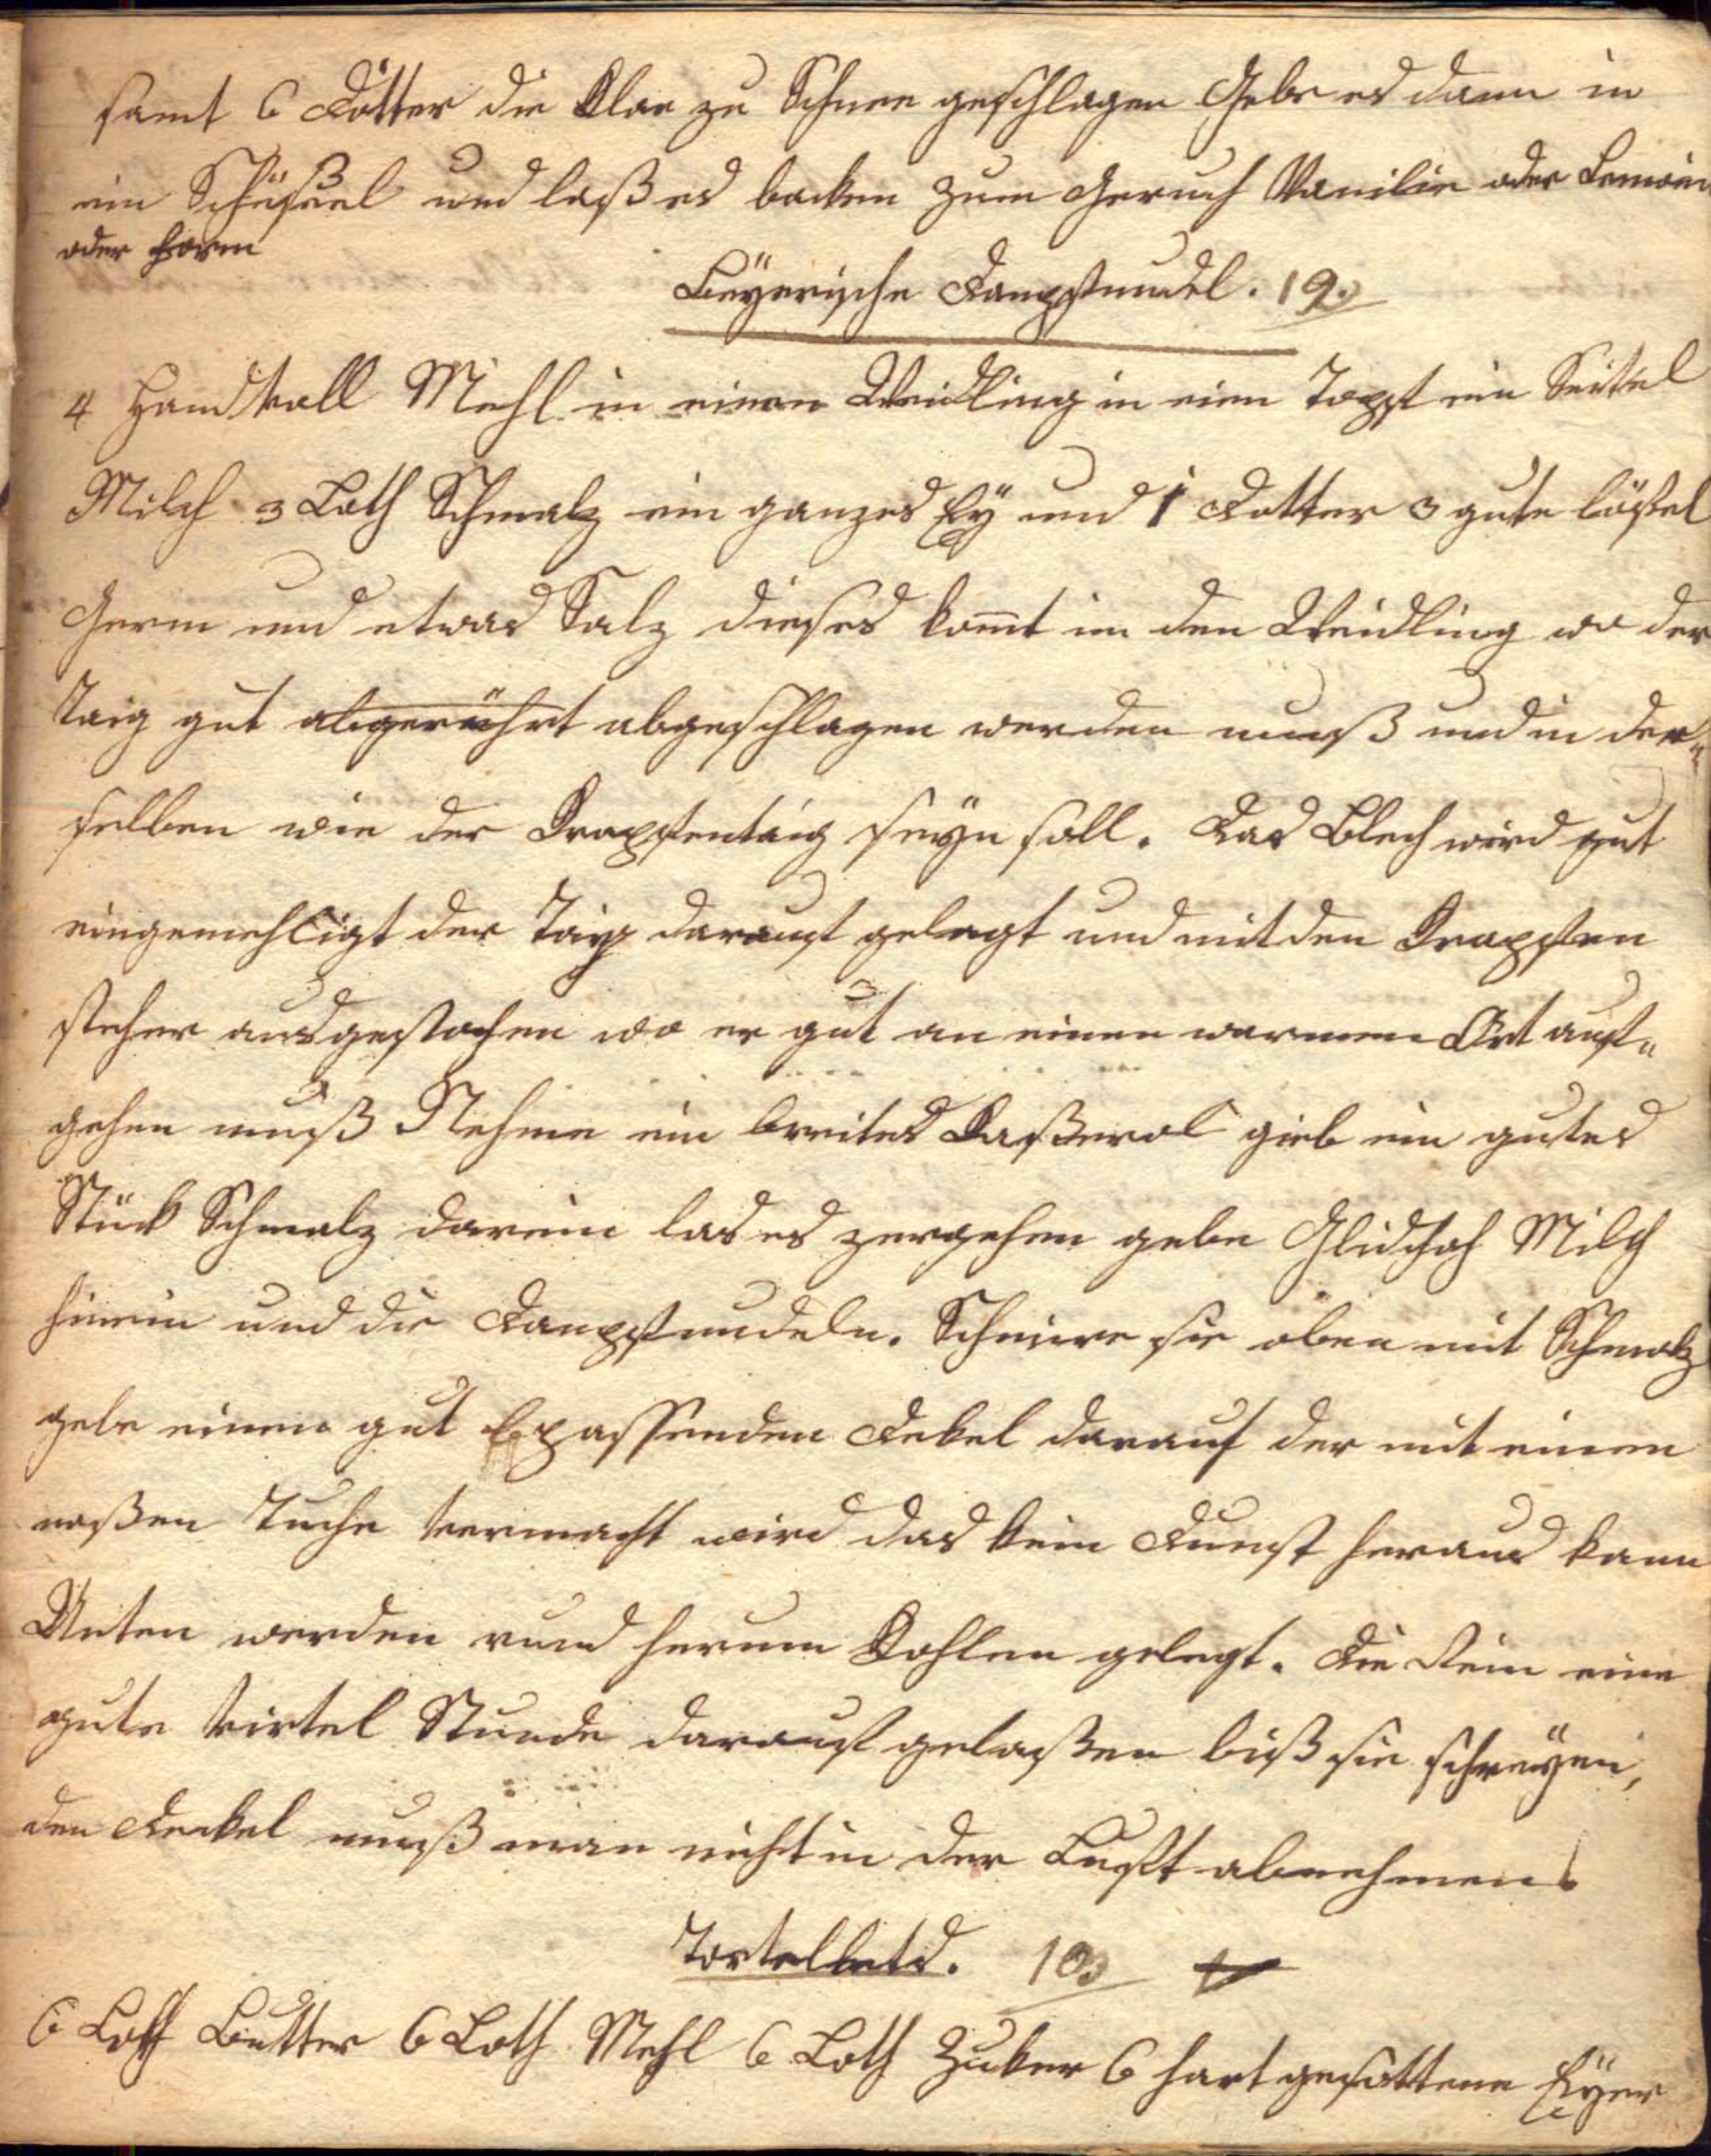 samt 6 Dötter die Klar zu Schnee geschlagen Gebe es dann in
ein Schüßerl und laß es backen zum Geruch Vanilie oder Lemoin
oder Form
Beyerische Dampfnudel. 19.
4 Handvoll Mehl in einen Weidling in eien Topf ein Seitel
Milch 3 Loth Schmalz ein ganzes Ey und 1 Dotter 3 gute löffel
Germ und etwas Salz dieses kom̄t in den Weidling wo der
Taig gut abgerührt abgeschlagen werden muß und in der„
selben wie der Krapfentaig seÿn soll. Das Blech wird gut
eingemehligt der Taig darauf gelegt und mit den Krapfen
stecher ausgestochen wo er gut an einen warmen Ort auf„
gehen muß Nehme ein breites Kaßerol gieb ein gutes
Stück Schmalz darein las es zergehen gebe Milch
hinein und die Dampfnudeln. Schmiere sie oben mit Schmalz
gebe einen gut passenden Dekel darauf der mit einen
naßen Tuche vermacht wird das kein Dunst heraus kann
Unten werden rund herum Kohlen gelegt. Die Rein eine
gute virtel Stunde darauf gelaßen biß sie schreÿen,
den Deckel muß man nicht in der Luft abnehmen.
Tortellets. 10.
6 Loth Butter 6 Loth Mehl 6 Loth Zuker 6 hart gesottene Eÿer